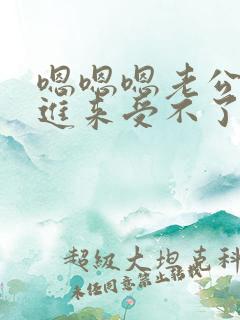 嗯嗯嗯老公
进来受不了
超级大坦克科
未经同意禁止转载